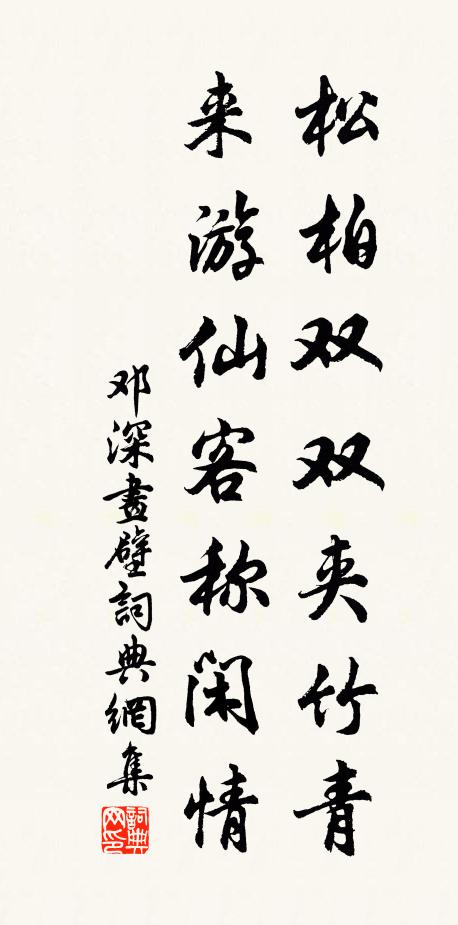 松柏双双夹竹青
来游仙客称闲情
邓深畫壁詞典網集
詞典
网印